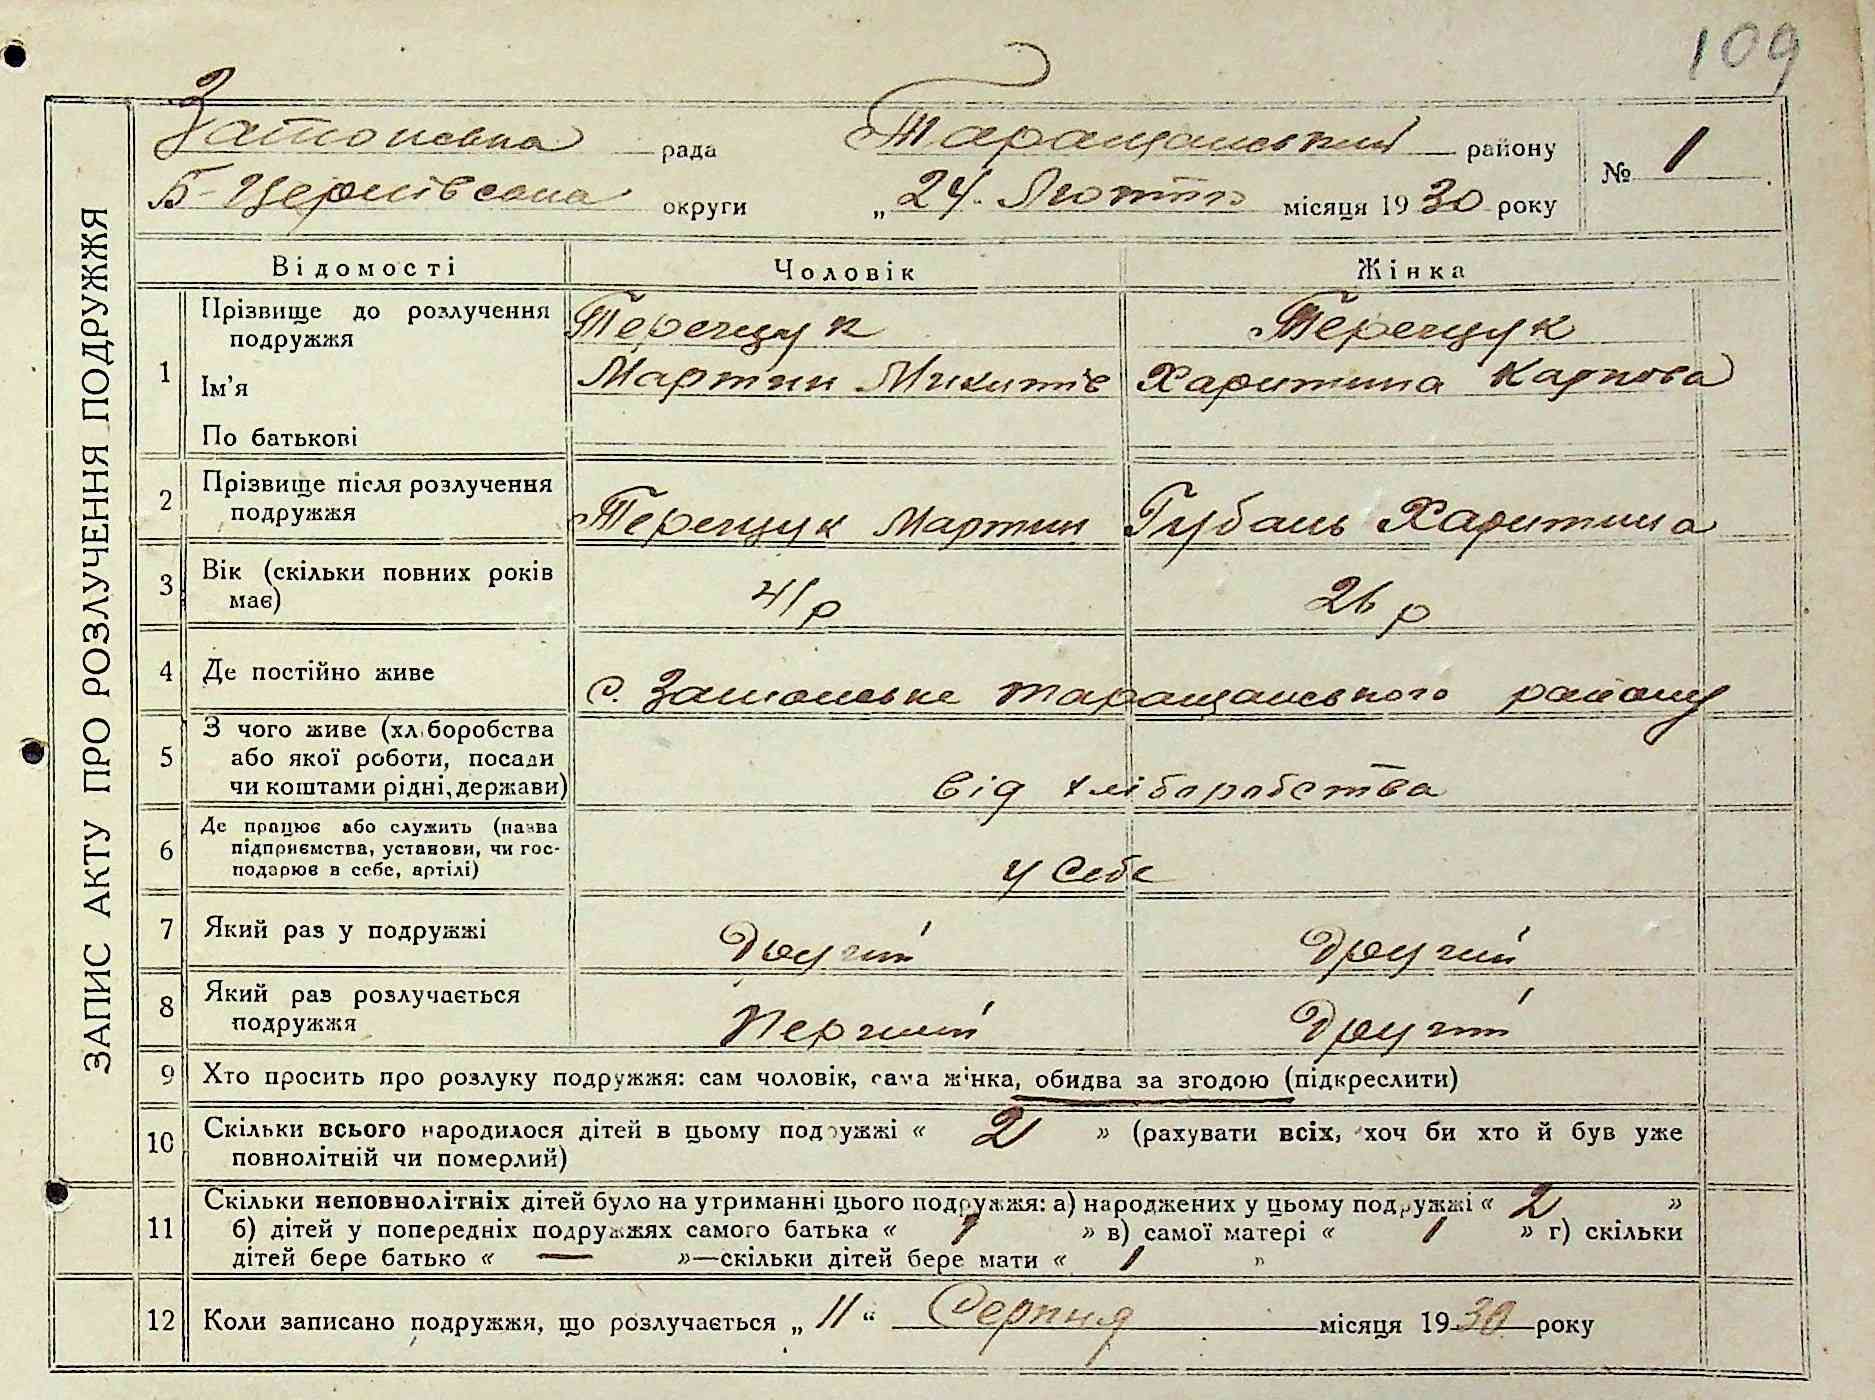 109
ЗАПИС АКТУ ПРО РОЗЛУЧЕННЯ ПОДРУЖЖЯ
рада Таращанський району № 1
Б-Церківська округи „ 24. Лютого місяця 1930 року
Відомості Чоловік Жінка
1 Прізвище до розлучення подружжя Терещук Терещук
Ім'я Мартин Микитів Харитина Карпова
По батькові
2 Прізвище після розлучення подружжя Терещук Мартин Губань Харитина
3 Вік (скільки повних років має) 41 р 26 р
4 Де постійно живе с. Таращанського району
5 З чого живе (хліборобства
або якої роботи, посади
чи коштами рідні, держави) від хліборобства
6 Де працює або служить (назва
підприємства, установи, чи гос-
подарює в себе, артілі) у себе
7 Який раз у подружжі Другий Другий
8 Який раз розлучається подружжя Перший Другий
9 Хто просить про розлуку подружжя: сам чоловік, сама жінка, обидва за згодою (підкреслити)
10 Скільки всього народилося дітей в цьому подружжі « 2 » (рахувати всіх, хоч би хто й був уже
повнолітній чи померлий)
11 Скільки неповнолітніх дітей було на утриманні цього подружжя: а) народжених у цьому подружжі « 2 »
б) дітей у попередніх подружжях самого батька « 1 » в) самої матері « 1 » г) скільки
дітей бере батько « — »—скільки дітей бере мати « 1 »
12 Коли записано подружжя, що розлучається „ 11 “ Серпня місяця 1930 року